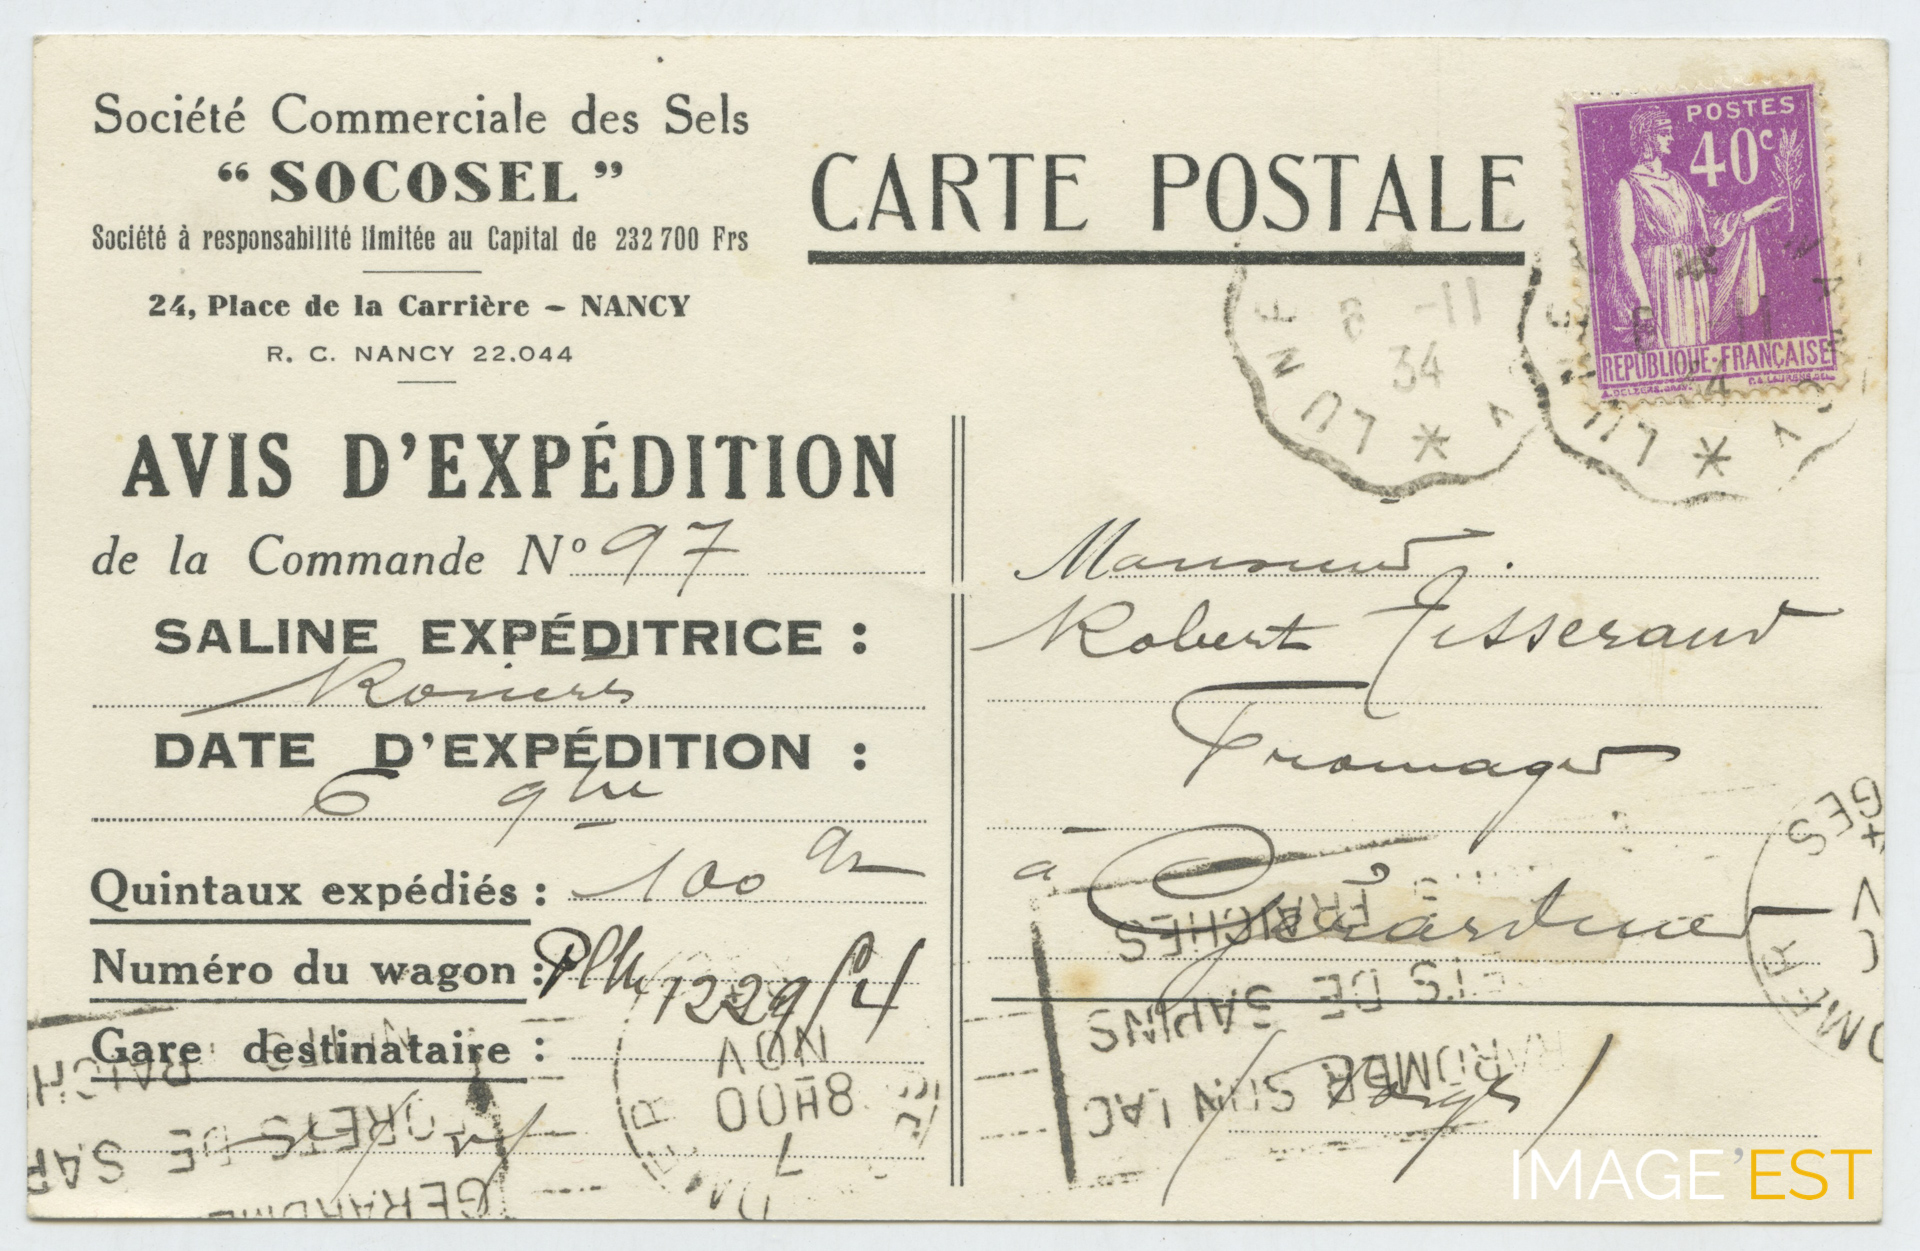 Société Commerciale des Sels
“SOCOSEL”
Société à responsabilité limitée au Capital de 232 700 Frs
24, Place de la Carrière – NANCY
R. C. NANCY 22.044
CARTE POSTALE
POSTES
40c
REPUBLIQUE·FRANÇAISE
8 -11
34
AVIS D'EXPÉDITION
de la Commande No 97
SALINE EXPÉDITRICE :
DATE D'EXPÉDITION :
6 9bre
Quintaux expédiés : 100 qx
Numéro du wagon : 1229/4
Gare destinataire :
Monsieur
Robert Tisserand
Fromager
à Gérardmer
(Vosges)
NOV
8H00
7
GERARDMER SON LAC
FORETS DE SAPINS
IMAGE'EST